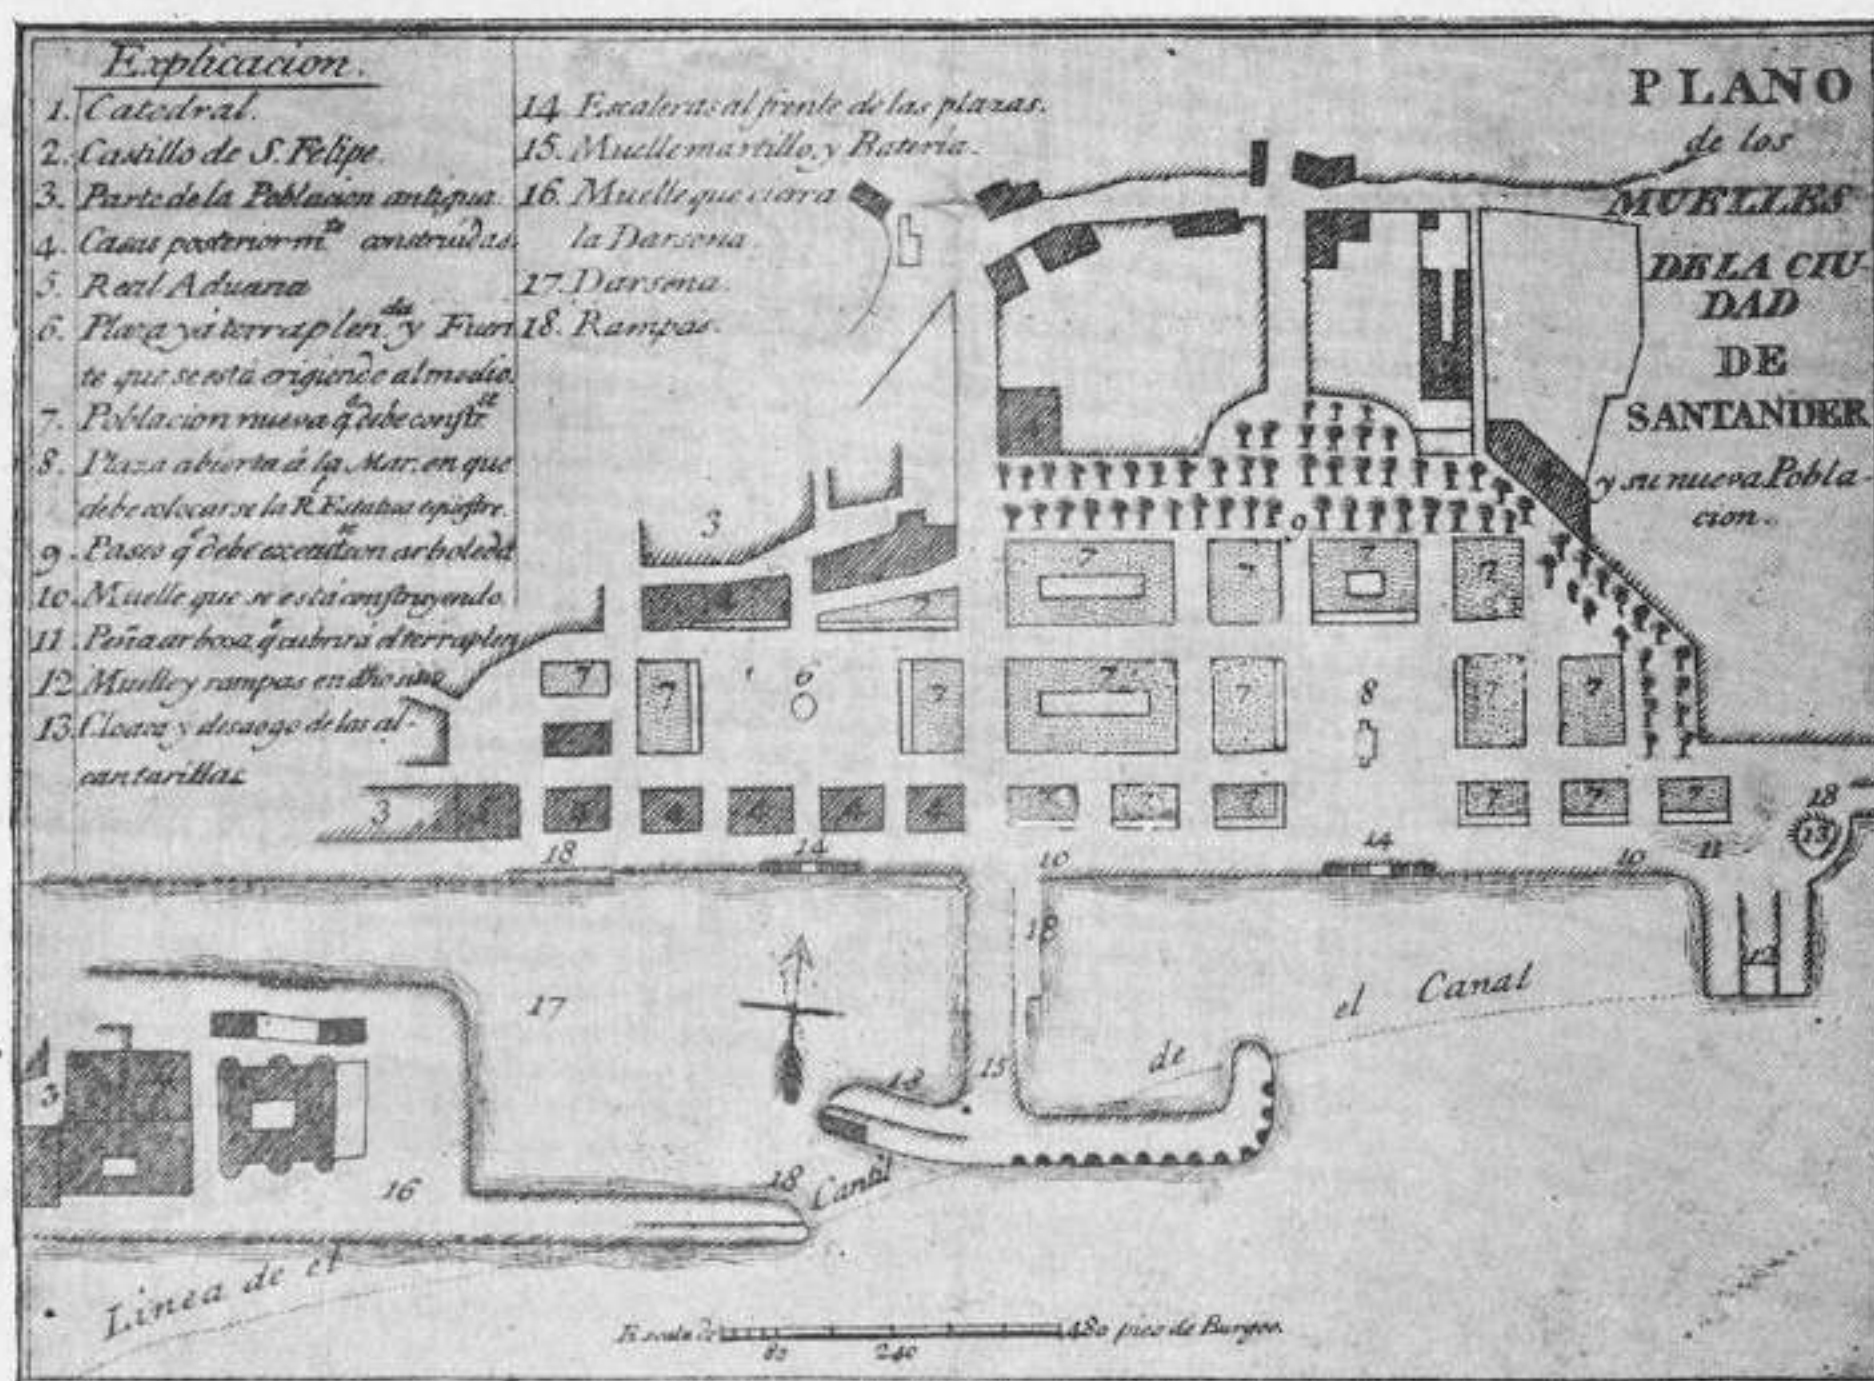 Explicacion.
1. Catedral.
2. Castillo de S. Felipe.
3. Parte de la Poblacion antigua.
4. Casas posteriorm.te construidas.
5. Real Aduana
6. Plaza yá terraplenda y Fuen
te que se está erigiendo al medio.
7. Poblacion nueva q.e debe constr.se
8. Plaza abierta á la Mar, en que
debe colocarse la R.l Estatua equestre.
9. Paseo q.e debe
con arboleda
10. Muelle que se está construyendo
11. Peña
q.e cubrirá el terraplen
12. Muelle y rampas en dho sitio
13. Cloaca y desaogo de las al-
cantarillas
14. Escaleras al frente de las plazas.
15. Muelle martillo, y Bateria.
16. Muelle que cierra
la Darsena.
17. Darsena.
18. Rampas.
PLANO
de los
MUELLES
DE LA CIU-
DAD
DE
SANTANDER
y su nueva Pobla-
cion.
3
9
7 7 7 7
7 7 6 7 7 7 8 7 7
3 4 4 4 4 7 7 7 7 7 7
18 14 10 14 10 11 18 13
18 12
17
el Canal
de
15
18
3
16 18
Cantil
Linea de el
Escala de 480 pies de Burgos.
80 240